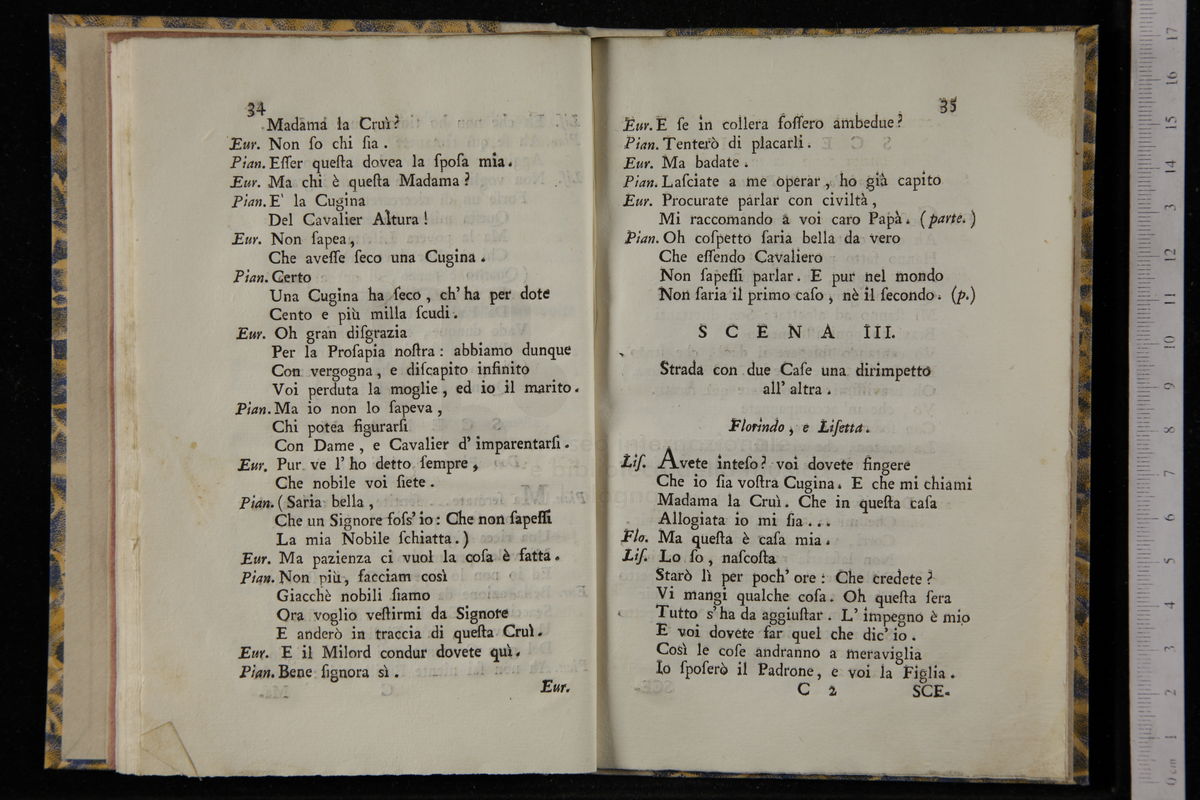 34
Madama la Cruì?
Eur. Non ſo chi ſia.
Pian. Eſſer queſta dovea la ſpoſa mia.
Eur. Ma chi è queſta Madama?
Pian. E' la Cugina
Del Cavalier Altura!
Eur. Non ſapea,
Che aveſſe ſeco una Cugina.
Pian. Certo
Una Cugina ha ſeco, ch' ha per dote
Cento e più milla ſcudi.
Eur. Oh gran diſgrazia
Per la Proſapia noſtra: abbiamo dunque
Con vergogna, e diſcapito infinito
Voi perduta la moglie, ed io il marito.
Pian. Ma io non lo ſapeva,
Chi potea figurarſi
Con Dame, e Cavalier d' imparentarſi.
Eur. Pur ve l' ho detto ſempre,
Che nobile voi ſiete.
Pian. (Saria bella,
Che un Signore foſs' io: Che non ſapeſſi
La mia Nobile ſchiatta.)
Eur. Ma pazienza ci vuol la coſa è fatta.
Pian. Non più, facciam così
Giacchè nobili ſiamo
Ora voglio veſtirmi da Signore
E anderò in traccia di queſta Cruì.
Eur. E il Milord condur dovete quì.
Pian. Bene ſignora sì.
Eur.
35
Eur. E ſe in collera foſſero ambedue?
Pian. Tenterò di placarli.
Eur. Ma badate.
Pian. Laſciate a me operar, ho già capito
Eur. Procurate parlar con civiltà,
Mi raccomando a voi caro Papà. (parte.)
Pian. Oh coſpetto ſaria bella da vero
Che eſſendo Cavaliero
Non ſapeſſi parlar. E pur nel mondo
Non ſaria il primo caſo, nè il ſecondo. (p.)
SCENA III.
Strada con due Caſe una dirimpetto
all' altra.
Florindo, e Liſetta.
Liſ. Avete inteſo? voi dovete fingere
Che io ſia voſtra Cugina. E che mi chiami
Madama la Cruì. Che in queſta caſa
Allogiata io mi ſia...
Flo. Ma queſta è caſa mia.
Liſ. Lo ſo, naſcoſta
Starò lì per poch' ore: Che credete?
Vi mangi qualche coſa. Oh queſta ſera
Tutto s' ha da aggiuſtar. L' impegno è mio
E voi dovete far quel che dic' io.
Così le coſe andranno a meraviglia
Io ſpoſerò il Padrone, e voi la Figlia.
C 2 SCE-